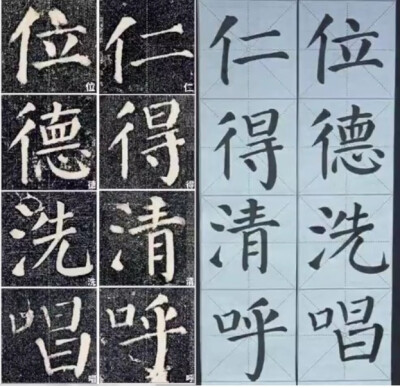 位仁仁位
位 仁
德得得德
德 得
洗清清洗
洗 清
唱呼呼唱
唱 呼